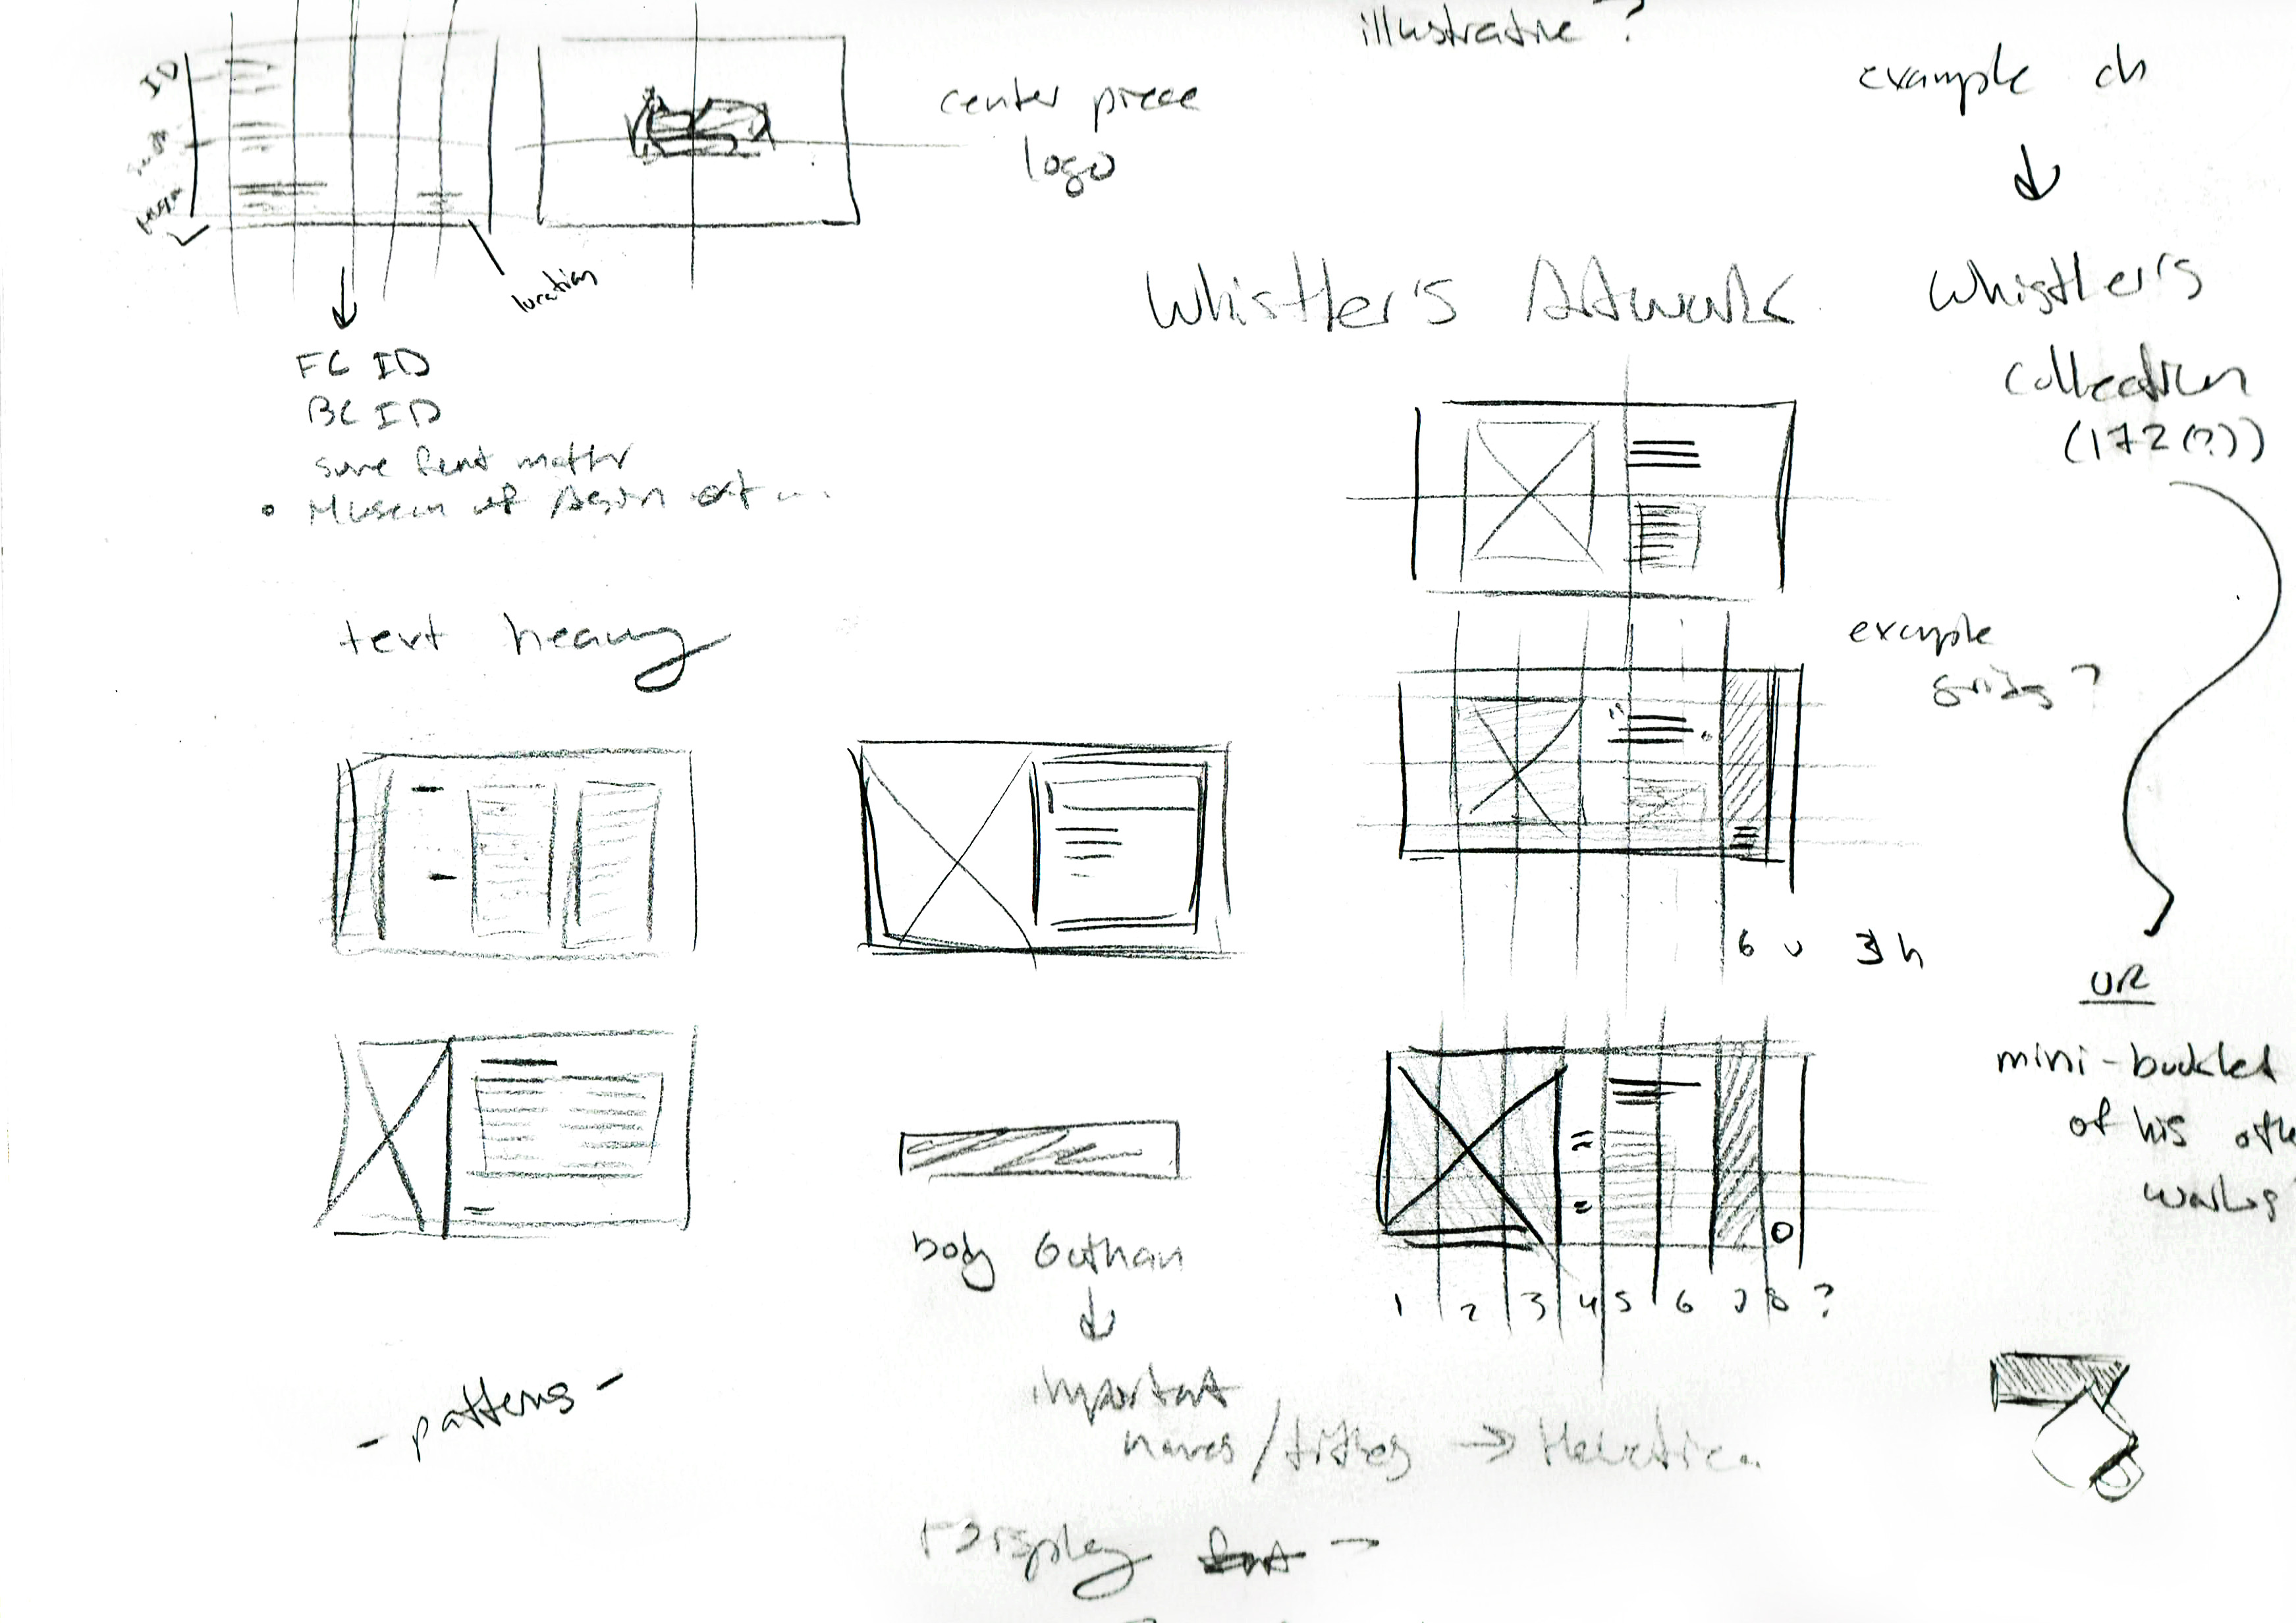 illustrative?
example ch
ID
center piece
logo
location
Whistler's Artwork
Whistler's
collection
(172(?))
FC ID
BC ID
some front matter
• Museum of Asian art ...
text heavy
example
grids?
6 v 3 h
OR
mini-booklet
of his
works
body Gotham
1 2 3 4 5 6 7 8 ?
- patterns -
important
names/titles → Helvetica
Display